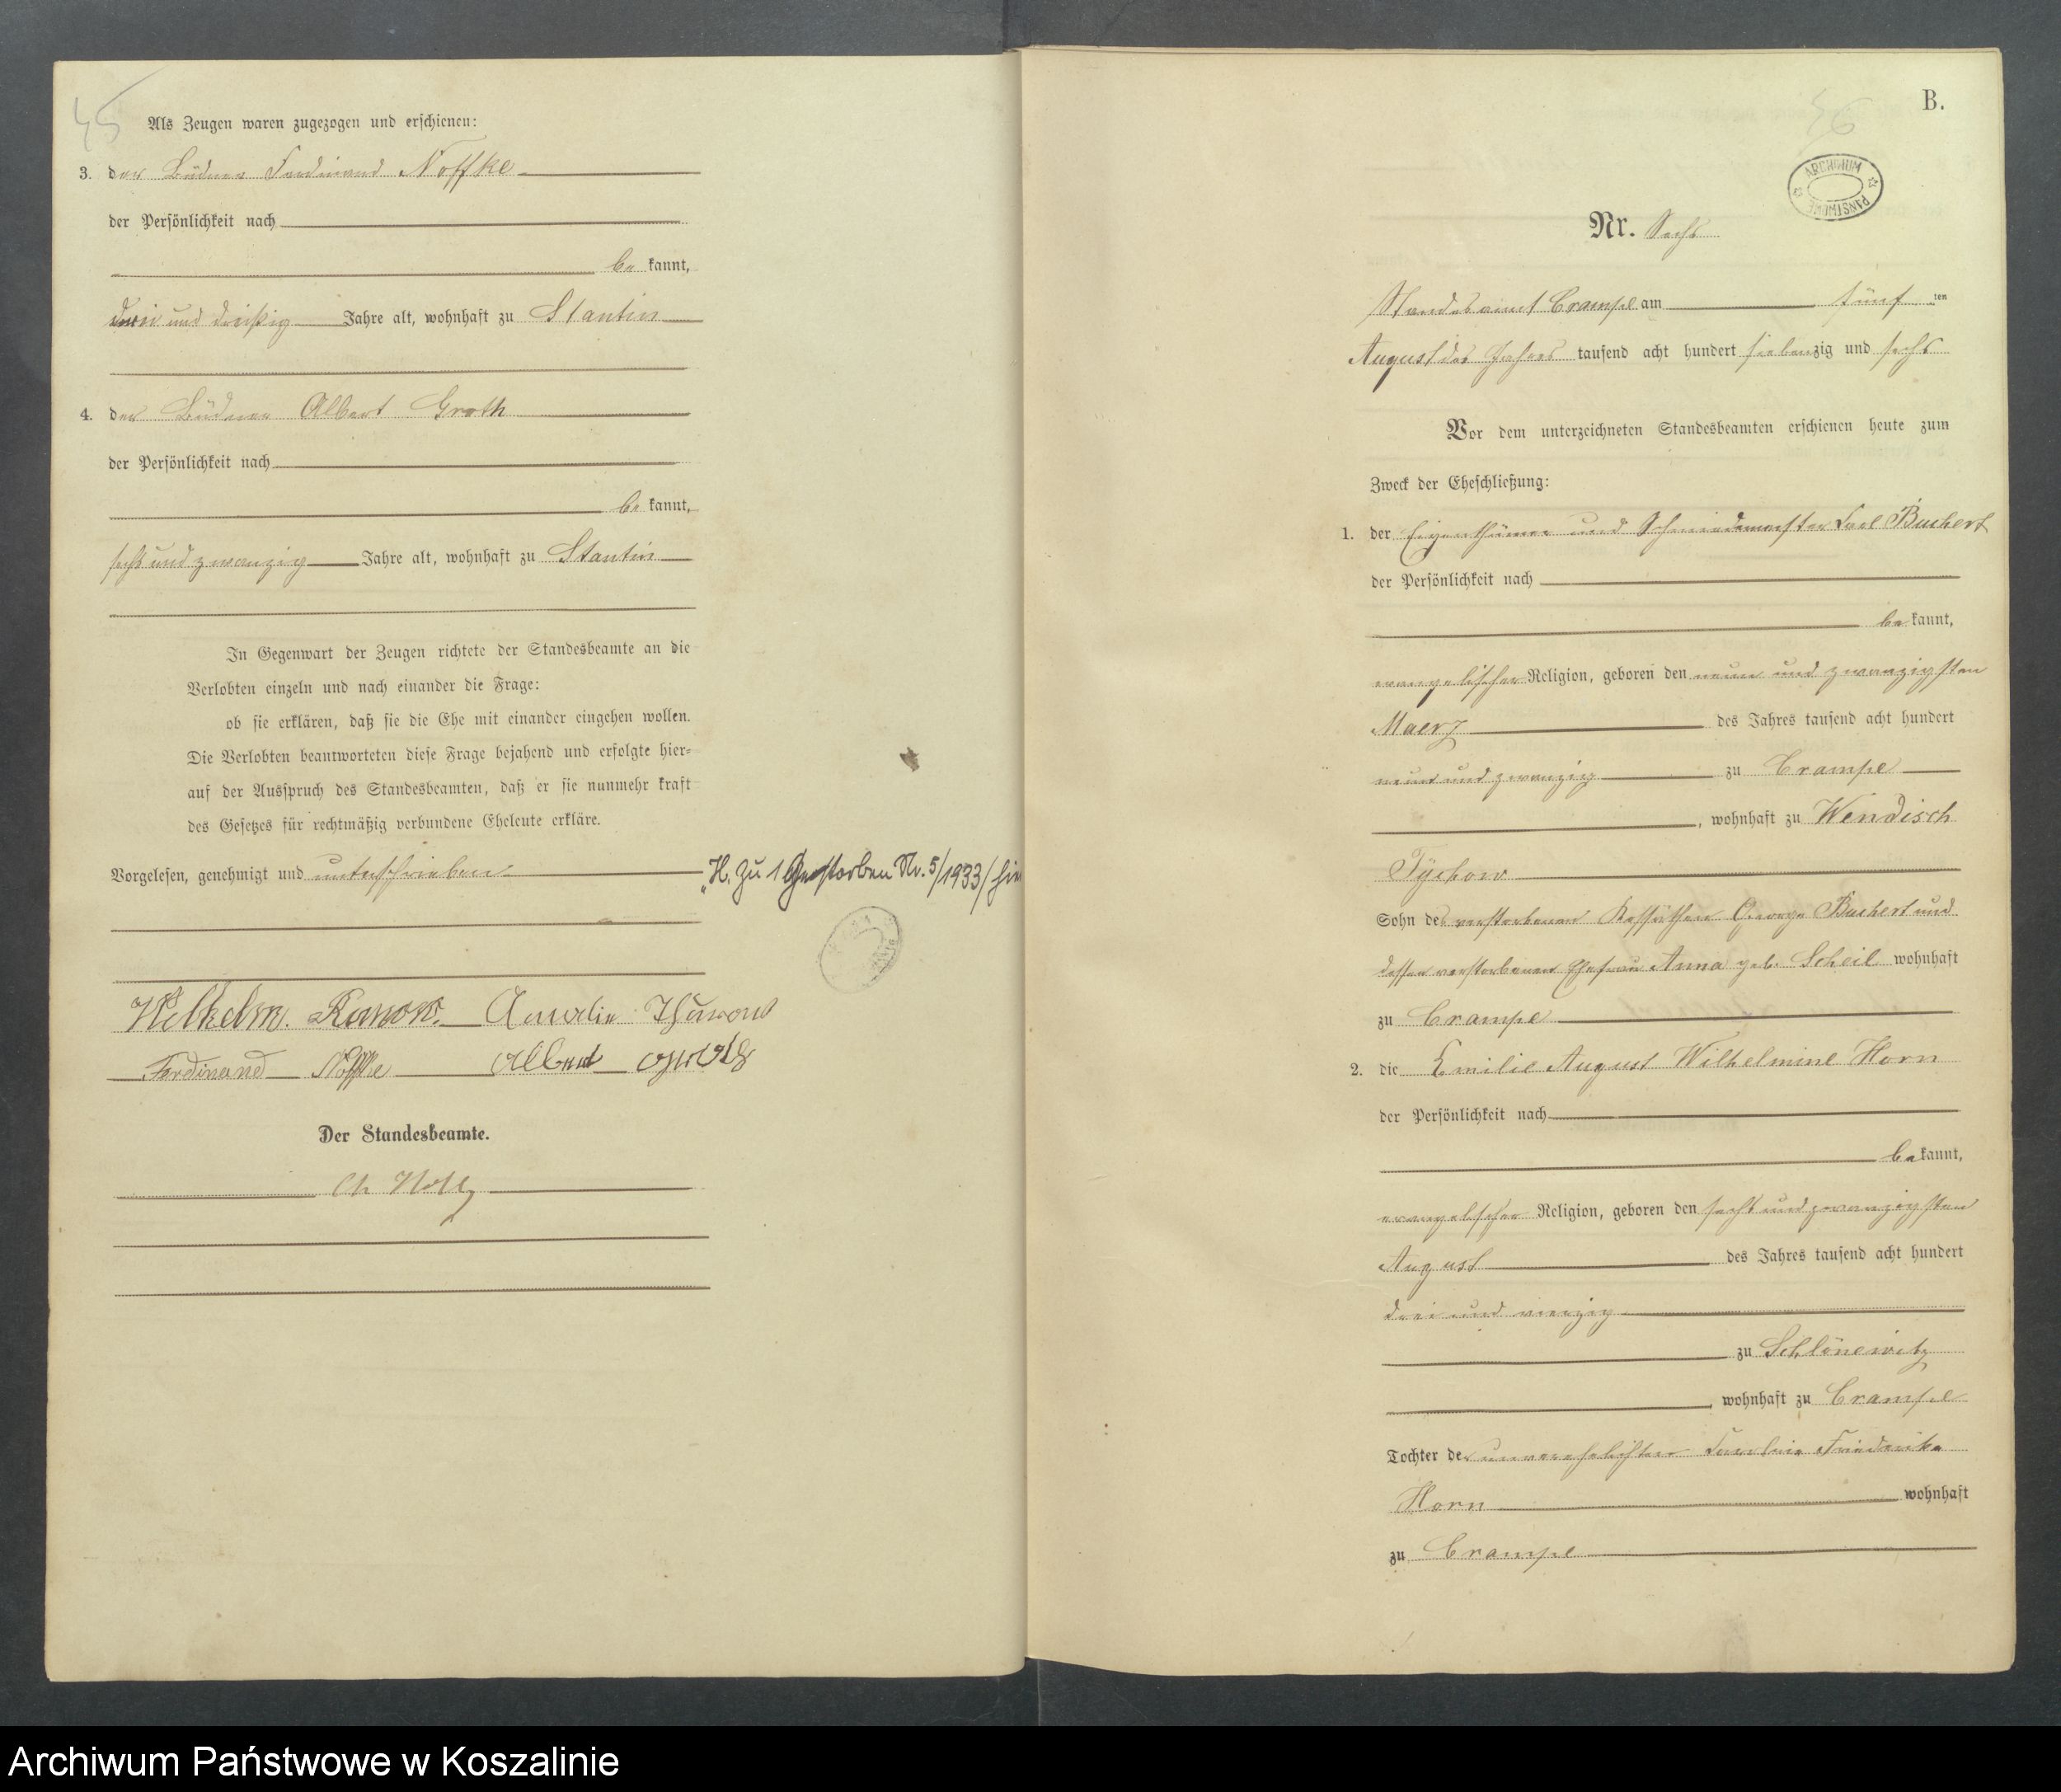 45
Als Zeugen waren zugezogen und erschienen:
3. der Büdner Ferdinand Noffke
der Persönlichkeit nach
be kannt,
drei und dreißig Jahre alt, wohnhaft zu Stantin
4. der Büdner Albert Groth
der Persönlichkeit nach
be kannt,
sechs und zwanzig Jahre alt, wohnhaft zu Stantin
In Gegenwart der Zeugen richtete der Standesbeamte an die
Verlobten einzeln und nach einander die Frage:
ob sie erklären, daß sie die Ehe mit einander eingehen wollen.
Die Verlobten beantworteten diese Frage bejahend und erfolgte hier-
auf der Ausspruch des Standesbeamten, daß er sie nunmehr kraft
des Gesetzes für rechtmäßig verbundene Eheleute erkläre.
Vorgelesen, genehmigt und unterschrieben
H. zu 1 Gestorben Nr. 5/1933/
Wilhelm Ramow. Aurelie
Ferdinand Noffke Albert Groth
Der Standesbeamte.
56
B.
ARCHIWUM PAŃSTWOWE
Nr. Sechs
Standesamt Crampe am fünf ten
August des Jahres tausend acht hundert siebenzig und sechs
Vor dem unterzeichneten Standesbeamten erschienen heute zum
Zweck der Eheschließung:
1. der Eigenthümer und Schmiedemeister Carl Buchert
der Persönlichkeit nach
be kannt,
evangelischer Religion, geboren den neun und zwanzigsten
Maerz des Jahres tausend acht hundert
neun und zwanzig zu Crampe
, wohnhaft zu Wendisch
Tychow
Sohn des verstorbenen Kossäthen George Buchert und
dessen verstorbenen Ehefrau Anna geb. Scheil wohnhaft
zu Crampe
2. die Emilie August Wilhelmine Horn
der Persönlichkeit nach
be kannt,
evangelischer Religion, geboren den sechs und zwanzigsten
August des Jahres tausend acht hundert
drei und vierzig
zu Schlönewitz
, wohnhaft zu Crampe
Tochter der unverehelichten Caroline Friederike
Horn wohnhaft
zu Crampe
Archiwum Państwowe w Koszalinie